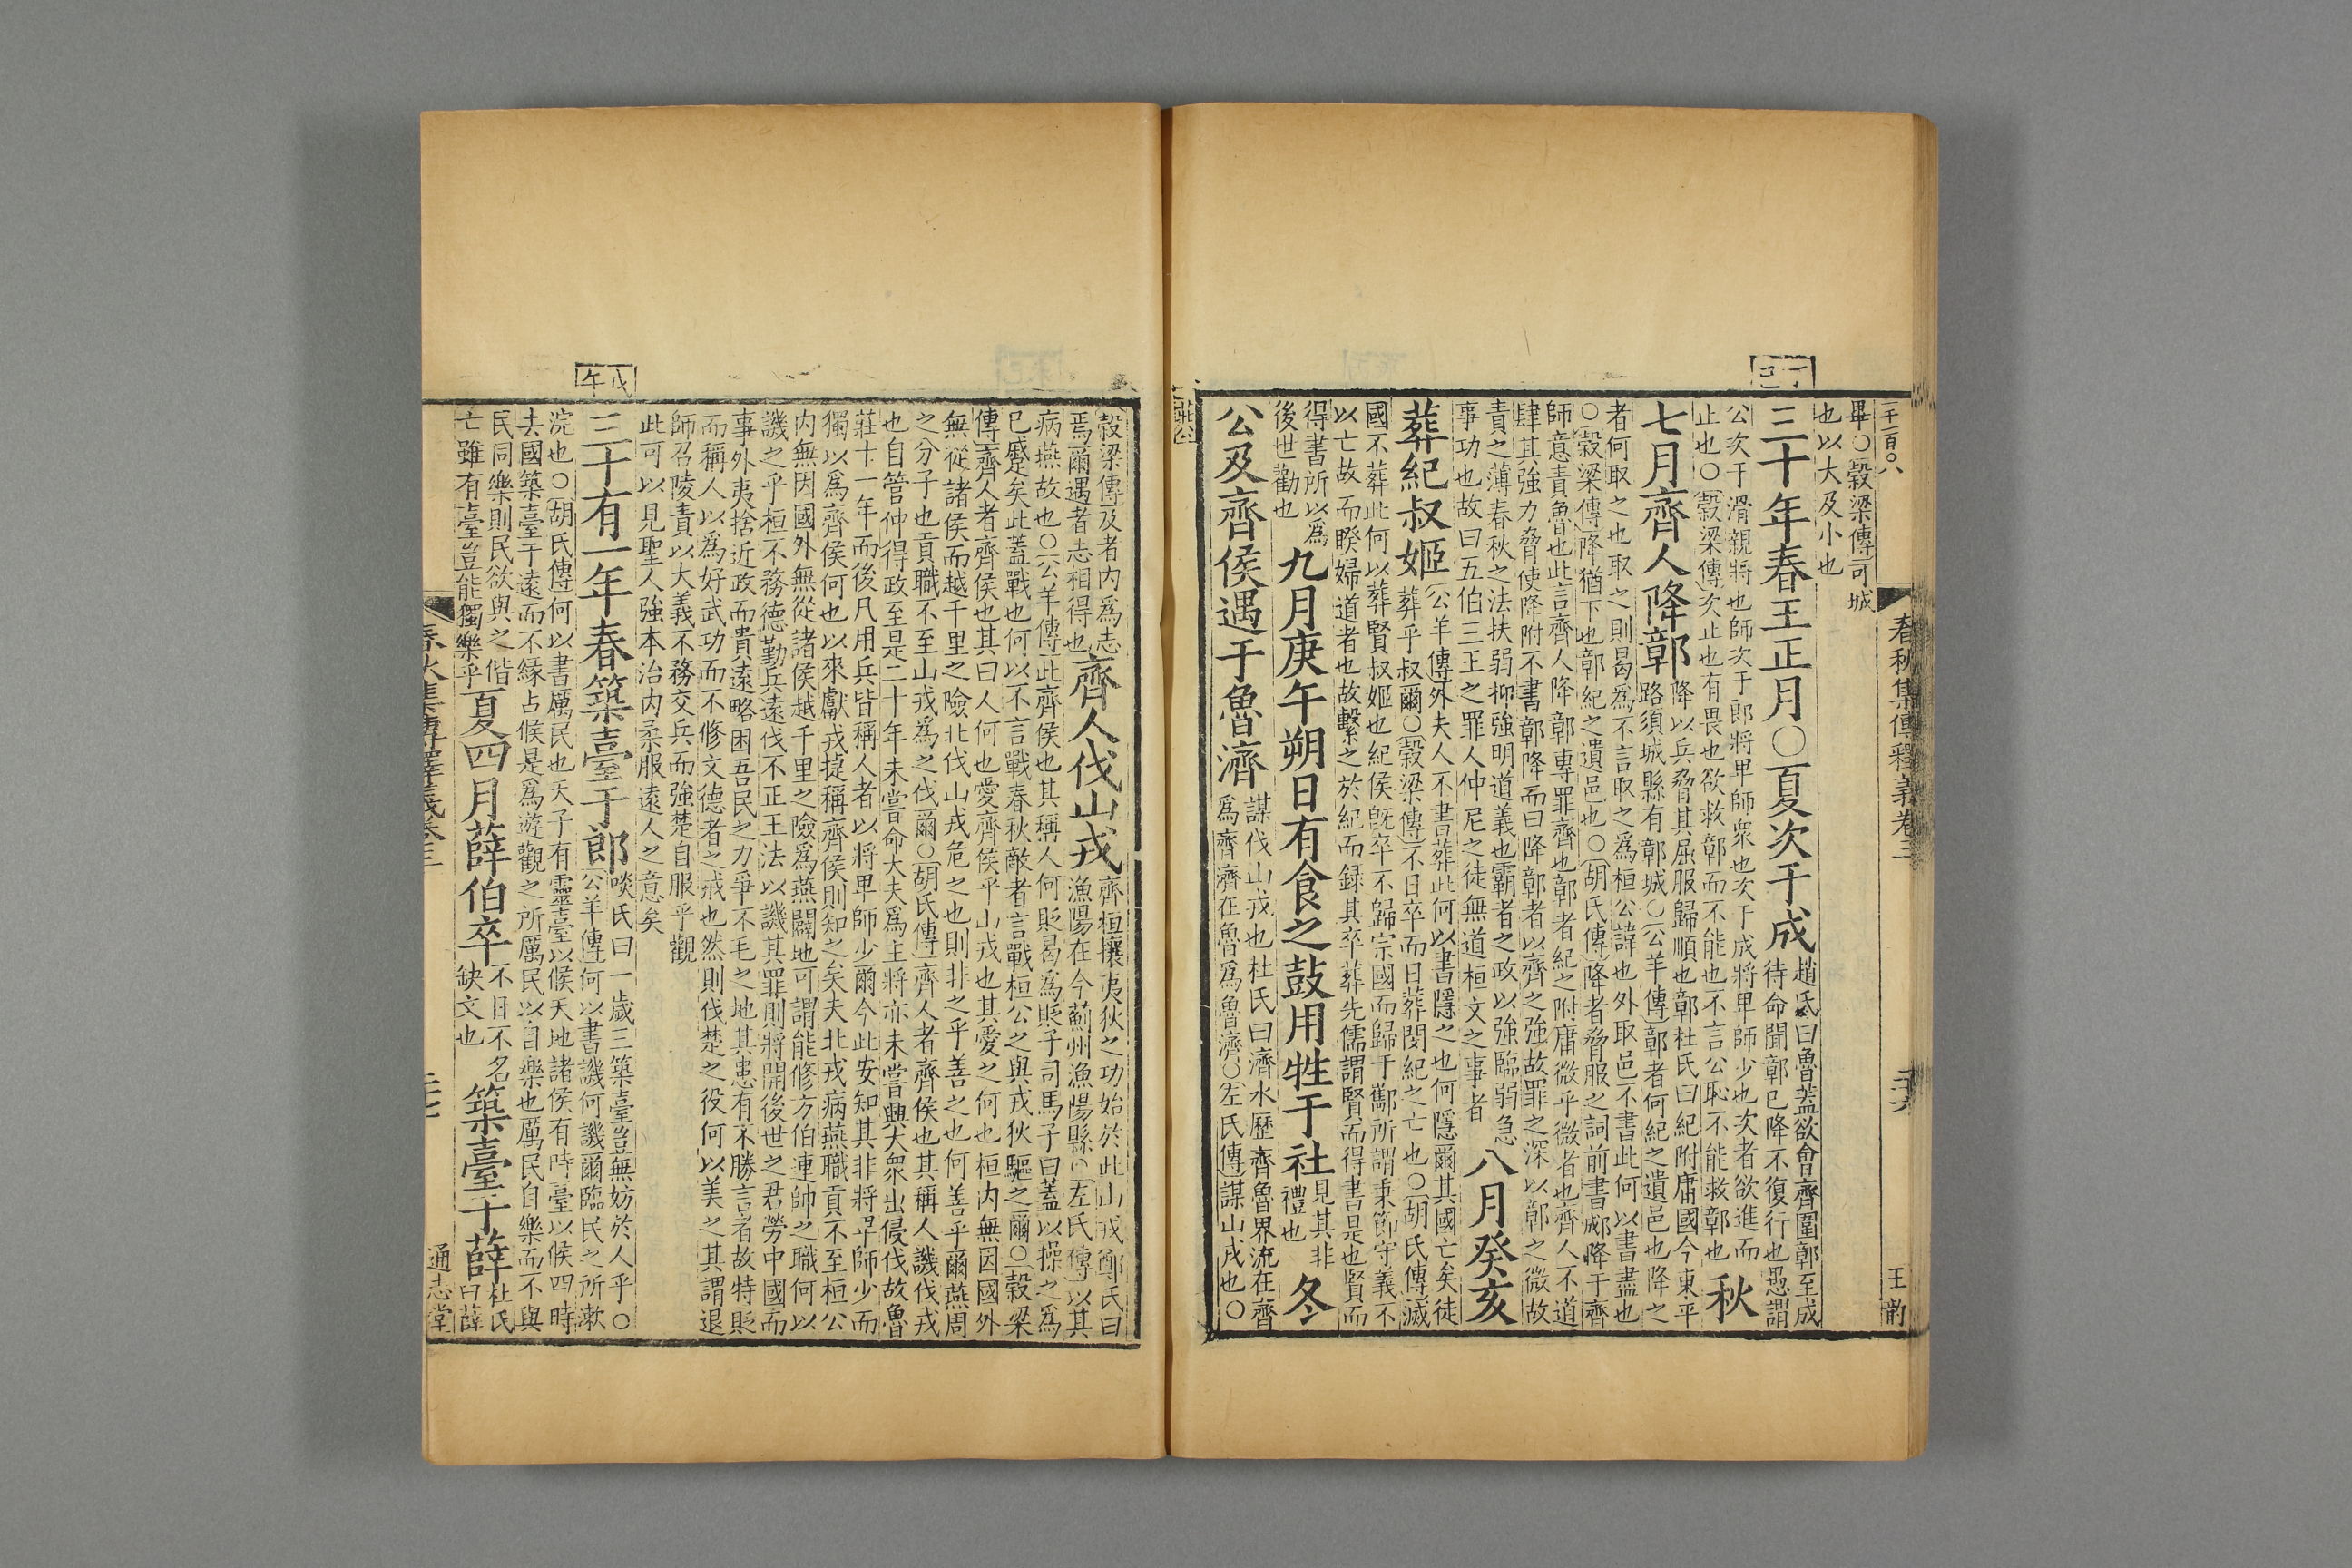 千百〇八
春秋集傳釋義卷三
二十六
王
丁巳
畢○穀梁傳可城
也以大及小也
三十年春王正月○夏次于成
趙氏曰魯蓋欲會齊圍鄣至成
待命聞鄣已降不復行也愚謂
公次于滑親將也師次于郎將卑師衆也次于成將卑師少也次者欲進而
止也○穀梁傳次止也有畏也欲救鄣而不能也不言公恥不能救鄣也
秋
七月齊人降鄣
降以兵脅其屈服歸順也鄣杜氏曰紀附庸國今東平
路須城縣有鄣城○公羊傳鄣者何紀之遺邑也降之
者何取之也取之則曷爲不言取之爲桓公諱也外取邑不書此何以書盡也
○穀梁傳降猶下也鄣紀之遺邑也○胡氏傳降者脅服之詞前書郕降于齊
師意責魯也此言齊人降鄣專罪齊也鄣者紀之附庸微乎微者也齊人不道
肆其強力脅使降附不書鄣降而曰降鄣者以齊之強故罪之深以鄣之微故
責之薄春秋之法扶弱抑強明道義也霸者之政以強臨弱急
事功也故曰五伯三王之罪人仲尼之徒無道桓文之事者
八月癸亥
葬紀叔姬
公羊傳外夫人不書葬此何以書隱之也何隱爾其國亡矣徒
葬乎叔爾○穀梁傳不日卒而日葬閔紀之亡也○胡氏傳滅
國不葬此何以葬賢叔姬也紀侯旣卒不歸宗國而歸于酅所謂秉節守義不
以亡故而睽婦道者也故繫之於紀而録其卒葬先儒謂賢而得書是也賢而
得書所以爲
後世勸也
九月庚午朔日有食之鼓用牲于社
見其非
禮也
冬
公及齊侯遇于魯濟
謀伐山戎也杜氏曰濟水歷齊魯界流在齊
爲齊濟在魯爲魯濟○左氏傳謀山戎也○
莊公
穀梁傳及者内爲志
焉爾遇者志相得也
齊人伐山戎
齊桓攘夷狄之功始於此山戎鄭氏曰
漁陽在今薊州漁陽縣○左氏傳以其
病燕故也○公羊傳此齊侯也其稱人何貶曷爲貶子司馬子曰蓋以操之爲
已蹙矣此蓋戰也何以不言戰春秋敵者言戰桓公之與戎狄驅之爾○穀梁
傳齊人者齊侯也其曰人何也愛齊侯乎山戎也其愛之何也桓内無因國外
無從諸侯而越千里之險北伐山戎危之也則非之乎善之也何善乎爾燕周
之分子也貢職不至山戎爲之伐爾○胡氏傳齊人者齊侯也其稱人譏伐戎
也自管仲得政至是二十年未嘗命大夫爲主將亦未嘗興大衆出侵伐故魯
莊十一年而後凡用兵皆稱人者以將卑師少爾今此安知其非將卑師少而
獨以爲齊侯何也以來獻戎捷稱齊侯則知之矣夫北戎病燕職貢不至桓公
内無因國外無從諸侯越千里之險爲燕闢地可謂能修方伯連帥之職何以
譏之乎桓不務德勤兵遠伐不正王法以譏其罪則將開後世之君勞中國而
事外夷捨近政而貴遠略困吾民之力爭不毛之地其患有不勝言者故特貶
而稱人以爲好武功而不修文德者之戒也然則伐楚之役何以美之其謂退
師召陵責以大義不務交兵而強楚自服乎觀
此可以見聖人強本治内柔服遠人之意矣
戊午
三十有一年春築臺于郎
啖氏曰一歲三築臺豈無妨於人乎○
公羊傳何以書譏何譏爾臨民之所漱
浣也○胡氏傳何以書厲民也天子有靈臺以候天地諸侯有時臺以候四時
去國築臺于遠而不緣占候是爲遊觀之所厲民以自樂也厲民自樂而不與
民同樂則民欲與之偕
亡雖有臺豈能獨樂乎
夏四月薛伯卒
不日不名
缺文也
築臺于薛
杜氏
曰薛
春秋集傳釋義卷三
二十七
通志堂